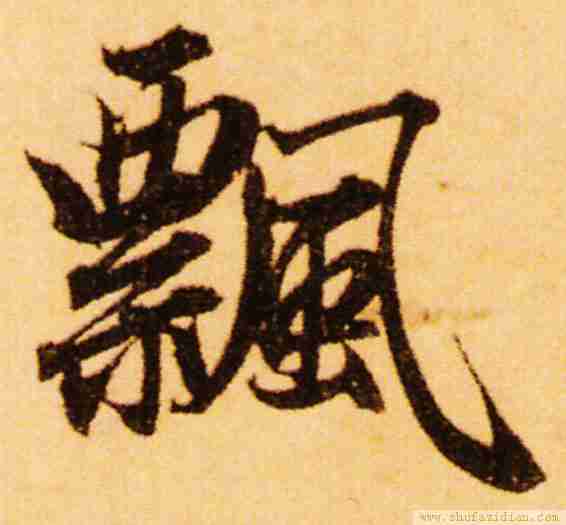 飄
www.shufazidian.com